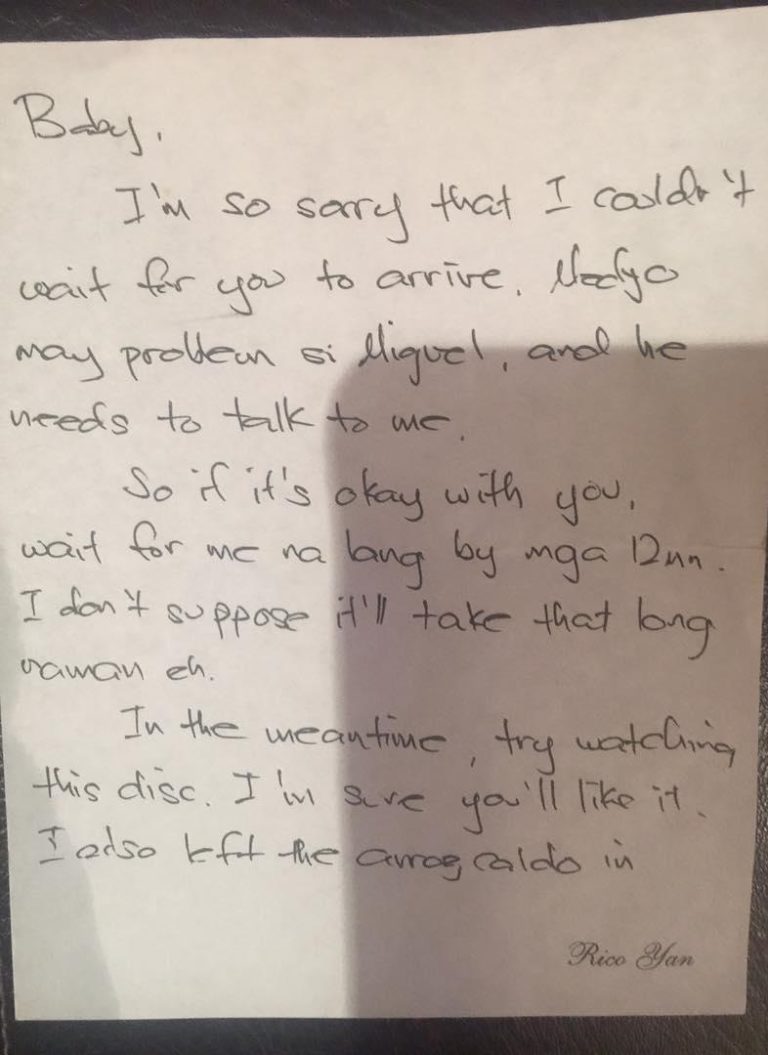 Baby,
I'm so sorry that I couldn't
wait for you to arrive. Medyo
may problem si Miguel, and he
needs to talk to me.
So if it's okay with you,
wait for me na lang by mga 12nn.
I don't suppose it'll take that long
naman eh.
In the meantime, try watching
this disc. I'm sure you'll like it.
I also left the arroz caldo in
Rico Yan